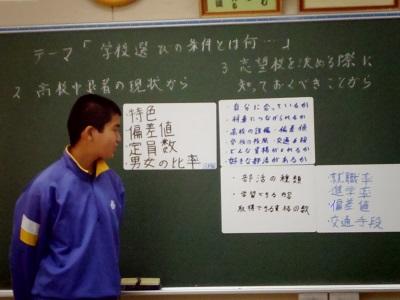 テーマ「学校選びの条件とは何…」
2 高校中退者の現状から
3 志望校を決める際に
知っておくべきことから
・特色
・偏差値
・定員数
・男女の比率
・自分に合っているか
・将来につなげられるか
・高校の評価・偏差値
・学校の場所・交通手段
・どんな資格がとれるか
・好きな部活があるか
・部活の種類
・学習できる内容
取得できる資格の数
就職率
進学率
・偏差値
・交通手段